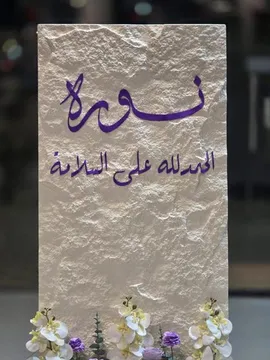 نوره
الحمدلله على السلامة